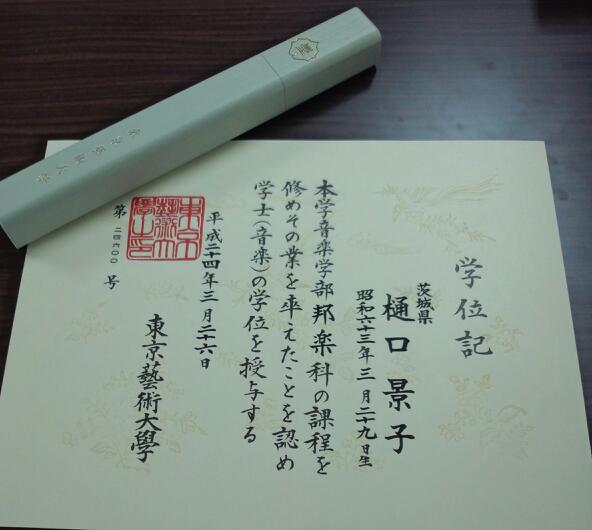 学位記
茨城県
樋口景子
昭和六十三年三月二十九日生
本学音楽学部邦楽科の課程を
修めその業を卒えたことを認め
学士(音楽)の学位を授与する
平成二十四年三月二十六日
東京藝術大學
第二四六〇〇号
東京藝術大學